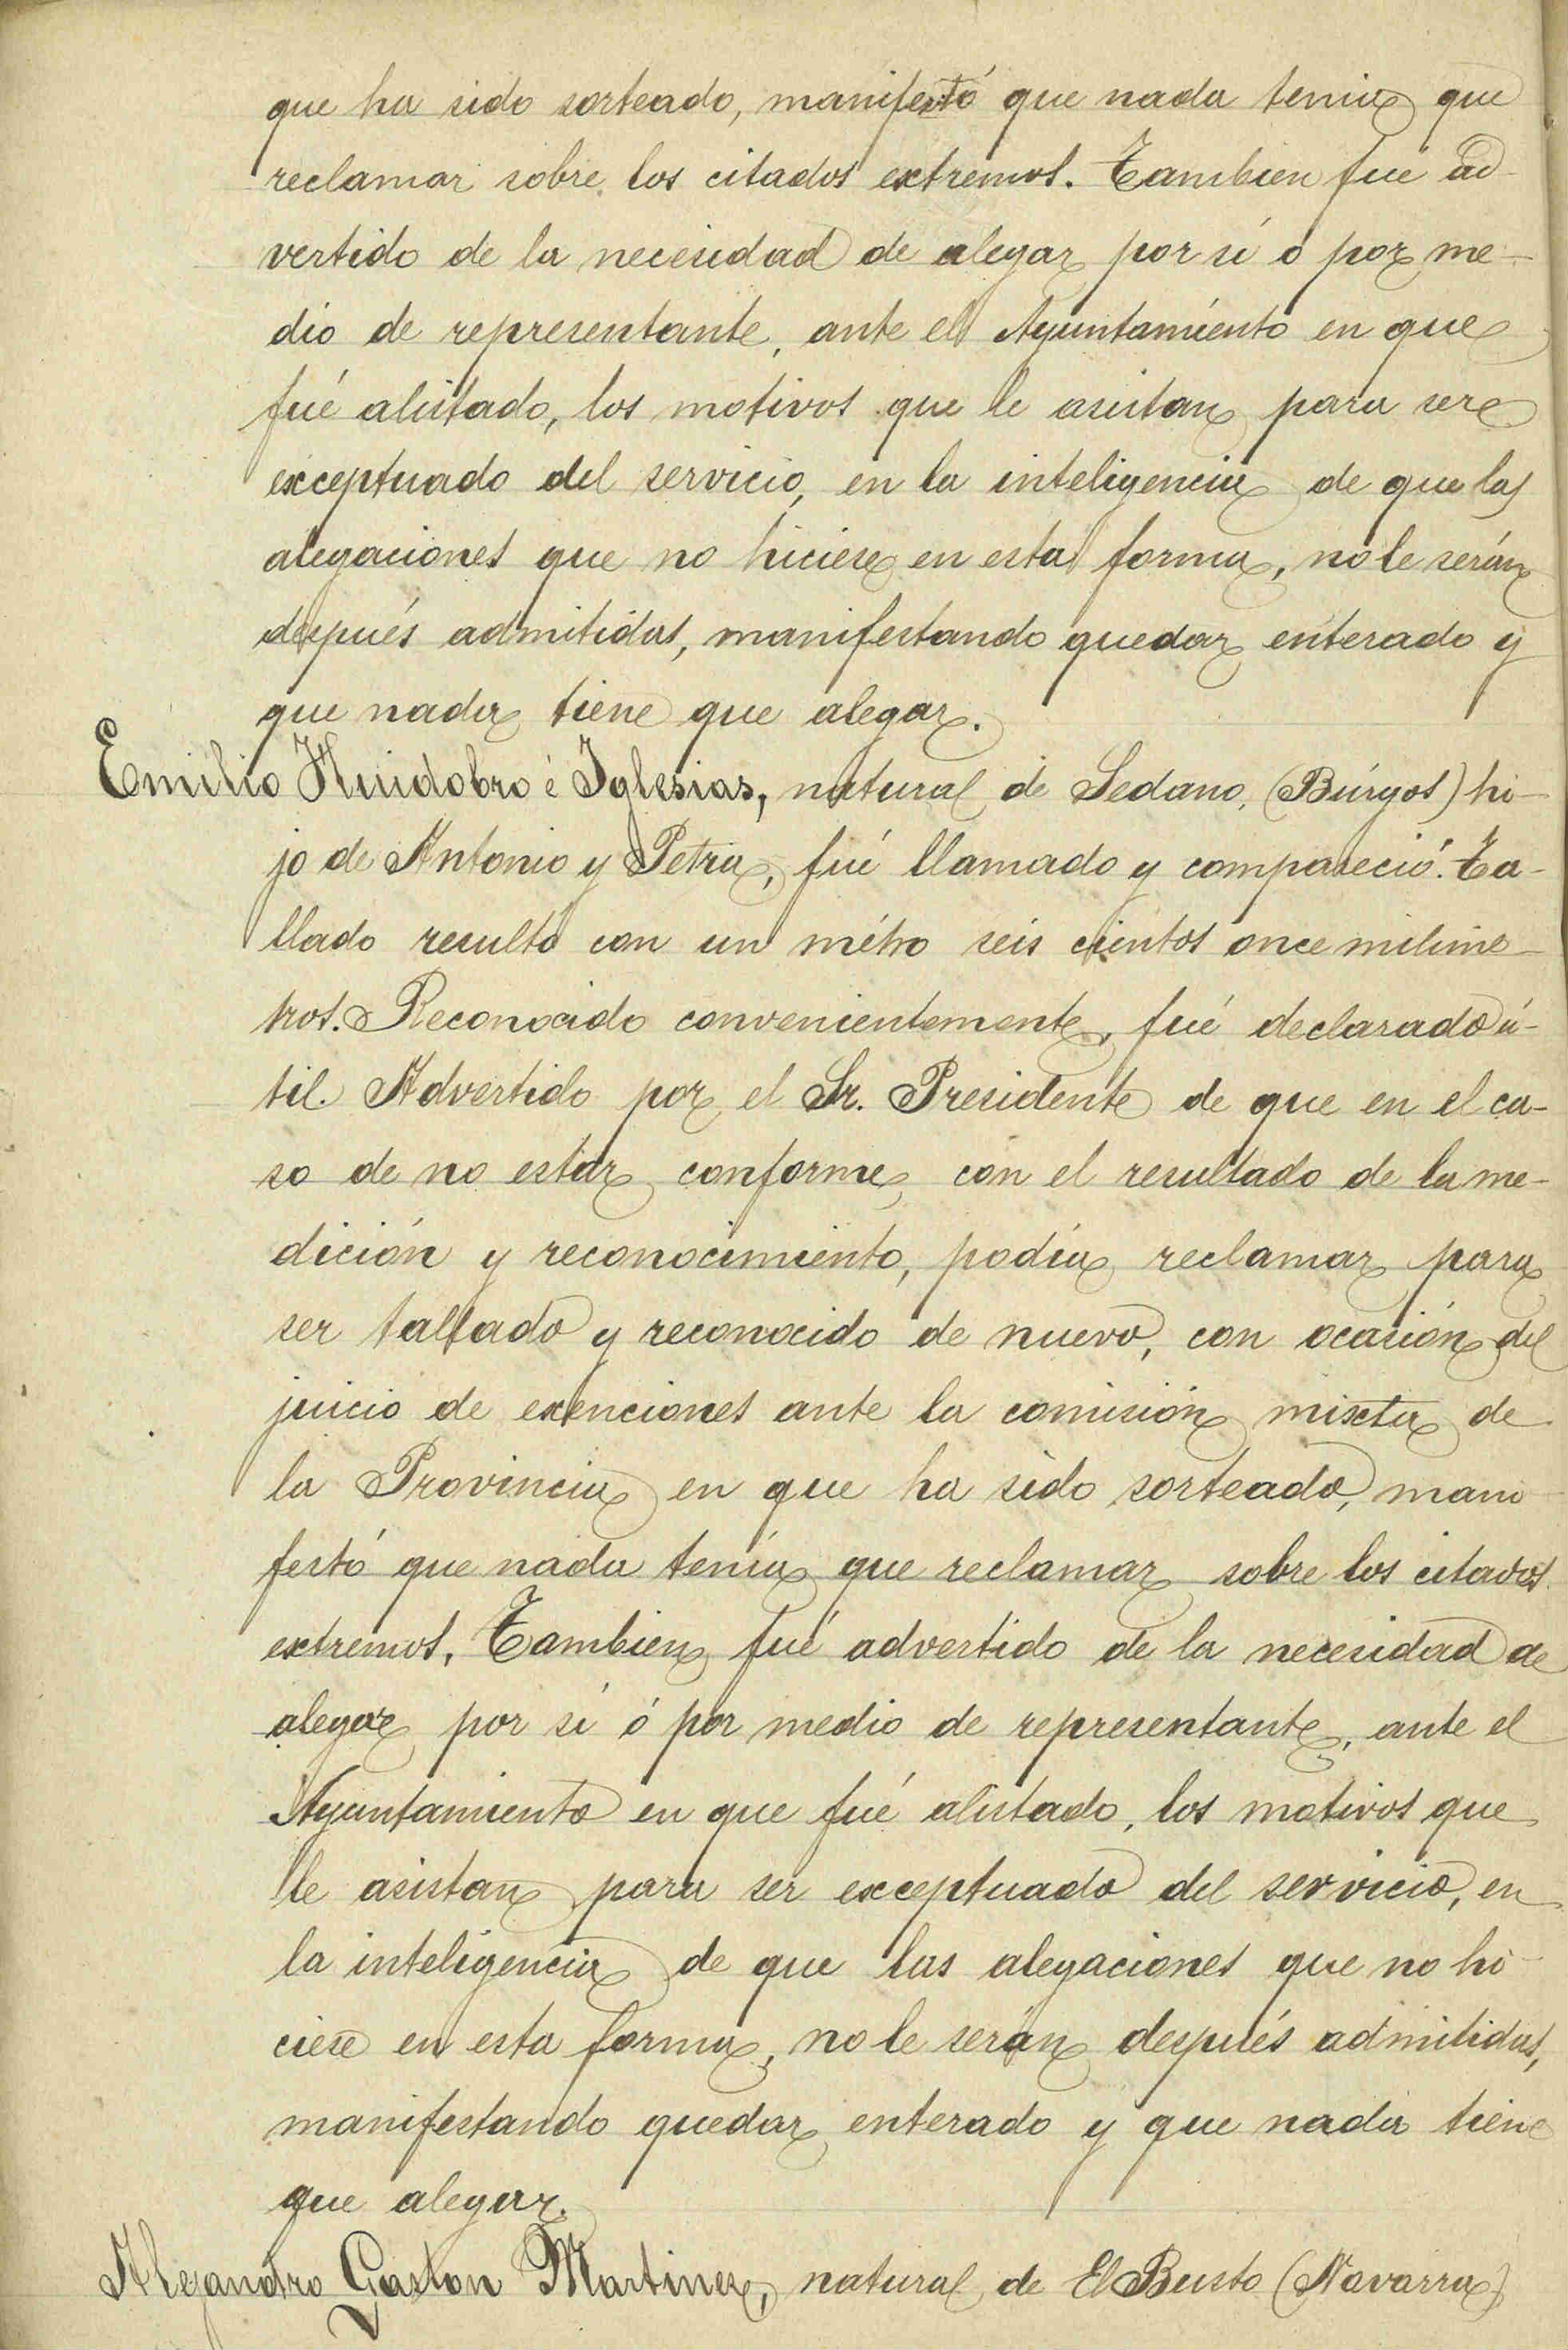 que ha sido sorteado, manifestó que nada tenia que
reclamar sobre los citados extremos. Tambien fue ad-
vertido de la necesidad de alegar por sí ó por me-
dio de representante, ante el Ayuntamiento en que
fué alistado, los motivos que le asistan para ser
exceptuado del servicio, en la inteligencia de que las
alegaciones que no hiciese en esta forma, no le serán
después admitidas, manifestando quedar enterado y
que nada tiene que alegar.
Emilio Huidobro é Iglesias, natural de Sedano, (Búrgos) hi-
jo de Antonio y Petra, fué llamado y compareció. Ta-
llado resultó con un métro seis cientos once milime-
tros. Reconocido convenientemente, fué declarado ú-
til. Advertido por el Sr. Presidente de que en el ca-
so de no estar conforme con el resultado de la me-
dición y reconocimiento, podía reclamar para
ser tallado y reconocido de nuevo, con ocasión del
juicio de exenciones ante la comisión mixta de
la Provincia en que ha sido sorteado, mani-
festó que nada tenía que reclamar sobre los citados
extremos. Tambien fué advertido de la necesidad de
alegar por sí ó por medio de representante, ante el
Ayuntamiento en que fué alistado, los motivos que
le asistan para ser exceptuado del servicio, en
la inteligencia de que las alegaciones que no hi-
ciese en esta forma, no le serán después admitidas,
manifestando quedar enterado y que nada tiene
que alegar.
Alejandro Gaston Martinez, natural de El Busto (Navarra)